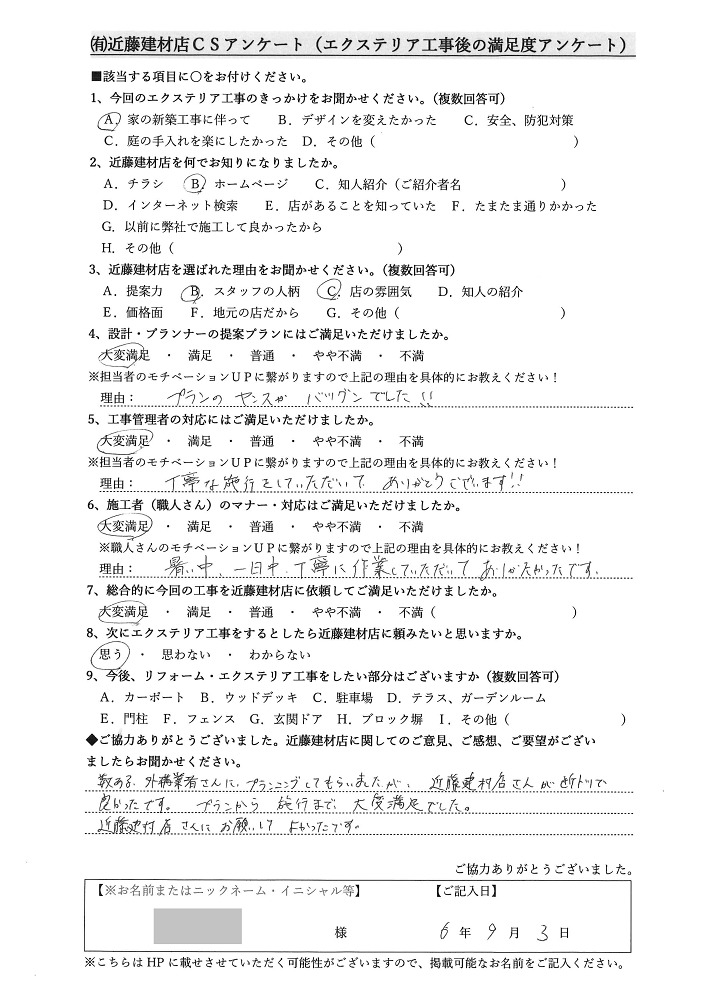 ㈲近藤建材店ＣＳアンケート（エクステリア工事後の満足度アンケート）
■該当する項目に○をお付けください。
1、今回のエクステリア工事のきっかけをお聞かせください。（複数回答可）
A．家の新築工事に伴って　B．デザインを変えたかった　C．安全、防犯対策
C．庭の手入れを楽にしたかった　D．その他（　　　）
2、近藤建材店を何でお知りになりましたか。
A．チラシ　B．ホームページ　C．知人紹介（ご紹介者名　　　）
D．インターネット検索　E．店があることを知っていた　F．たまたま通りかかった
G．以前に弊社で施工して良かったから
H．その他（　　　）
3、近藤建材店を選ばれた理由をお聞かせください。（複数回答可）
A．提案力　B．スタッフの人柄　C．店の雰囲気　D．知人の紹介
E．価格面　F．地元の店だから　G．その他（　　　）
4、設計・プランナーの提案プランにはご満足いただけましたか。
大変満足　・　満足　・　普通　・　やや不満　・　不満
※担当者のモチベーションＵＰに繋がりますので上記の理由を具体的にお教えください！
理由：　プランの センスが バツグンでした!!
5、工事管理者の対応にはご満足いただけましたか。
大変満足　・　満足　・　普通　・　やや不満　・　不満
※担当者のモチベーションＵＰに繋がりますので上記の理由を具体的にお教えください！
理由：　丁寧な施行をしていただいて ありがとうございます!!
6、施工者（職人さん）のマナー・対応はご満足いただけましたか。
大変満足　・　満足　・　普通　・　やや不満　・　不満
※職人さんのモチベーションＵＰに繋がりますので上記の理由を具体的にお教えください！
理由：　暑い中、一日中、丁寧に作業していただいて ありがたかったです。
7、総合的に今回の工事を近藤建材店に依頼してご満足いただけましたか。
大変満足　・　満足　・　普通　・　やや不満　・　不満（　　　）
8、次にエクステリア工事をするとしたら近藤建材店に頼みたいと思いますか。
思う　・　思わない　・　わからない
9、今後、リフォーム・エクステリア工事をしたい部分はございますか（複数回答可）
A．カーポート　B．ウッドデッキ　C．駐車場　D．テラス、ガーデンルーム
E．門柱　F．フェンス　G．玄関ドア　H．ブロック塀　I．その他（　　　）
◆ご協力ありがとうございました。近藤建材店に関してのご意見、ご感想、ご要望がござい
ましたらお聞かせください。
数ある、外構業者さんに、プランニングしてもらいましたが、近藤建材店さんが断トツで
良かったです。プランから 施行まで、大変満足でした。
近藤建材店さんに お願いして よかったです。
ご協力ありがとうございました。
【※お名前またはニックネーム・イニシャル等】　【ご記入日】
様　6 年 9 月 3 日
※こちらは HP に載せさせていただく可能性がございますので、掲載可能なお名前をご記入ください。